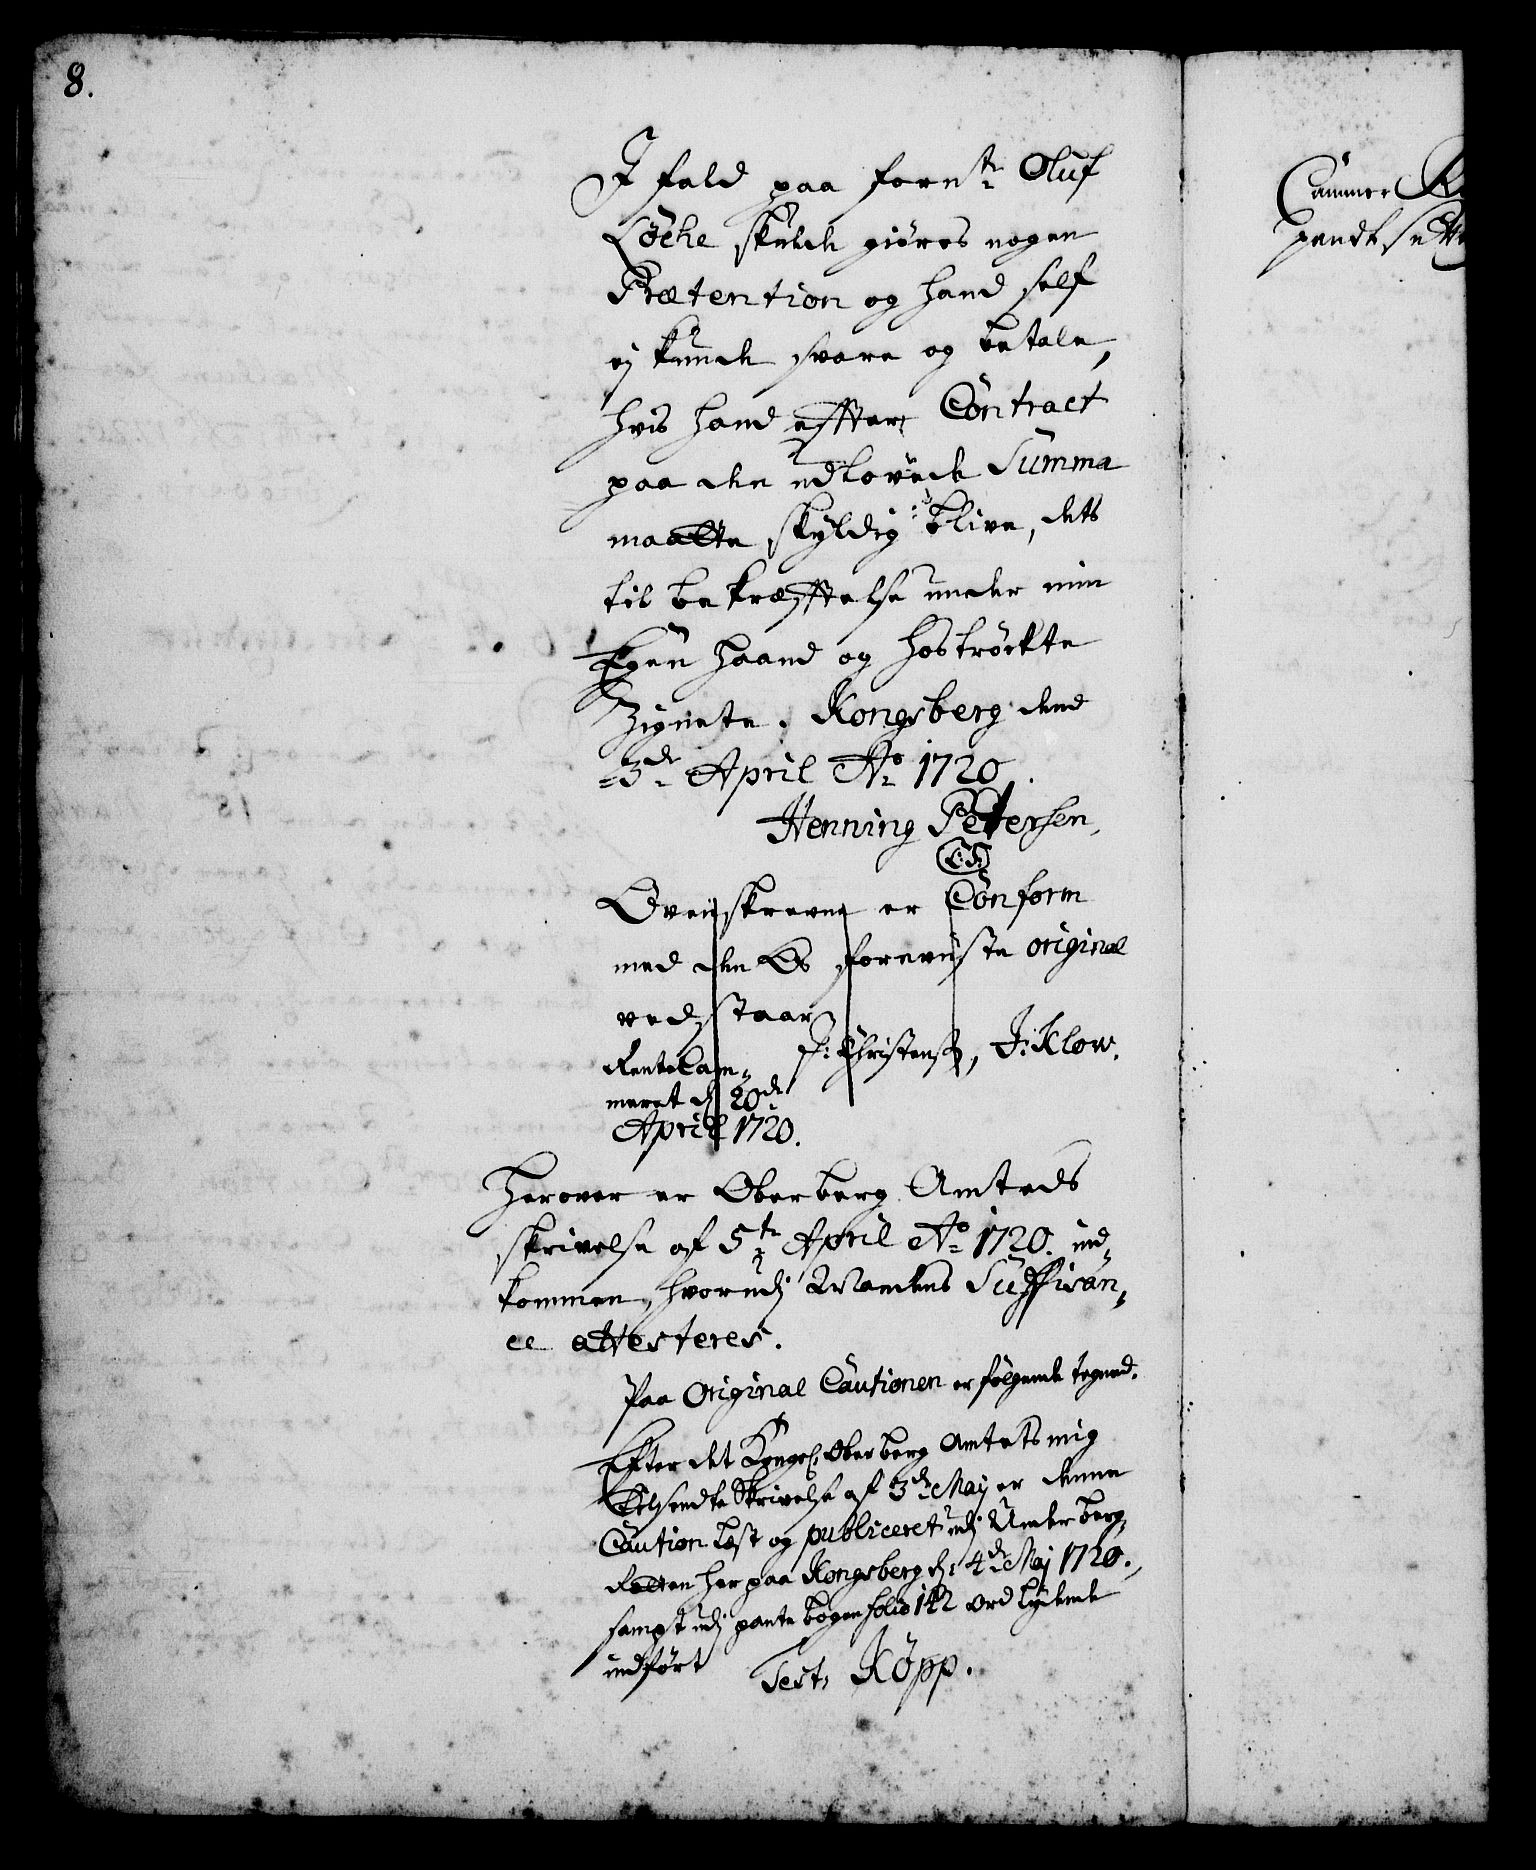 8.
I fald paa fornte Oluf
Löche skulde giöres nogen
Prætention og hand self
ej kunde svare og betale,
hvis hand effter Contract
paa den udlovede Summa
maatte skyldig blive, dets
til bekræfftelse under min
Egen haand og hoströkte
Zignete. Kongsberg dend
3de April Ao 1720.
Henning Pettersen,
(L:S:)
Ovenskrevne er Conform
med den Os foreviste original
vedstaar
Rentekam-
P: Christensen, J: Klow.
meret d 20de
April 1720.
Herover er Oberberg Amteds
skrivelse af 5te April Ao 1720. ind-
kommen, hvorudj Mandens Suffisan-
ce attesteres.
Paa Original Cautionen er fölgende tegned.
Efter det Kongel. Oberberg Amtets mig
tilsendte Skrivelse af 3de Maij er denne
Caution læst og publiceret udj Underberg-
Retten her paa Kongsberg d: 4de Maj 1720.,
sampt udj pante bogen folio 142 ord lydende
indfört
Test, Köpp.
Cammer